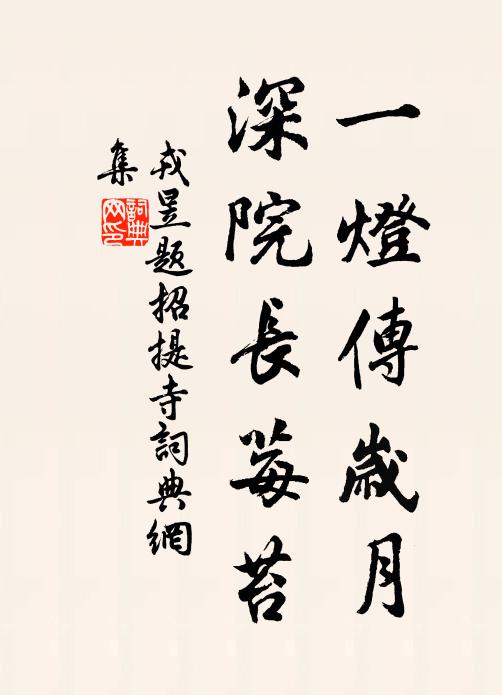 一燈傳歲月
深院長莓苔
戎昱題招提寺詞典網
集
詞典网印